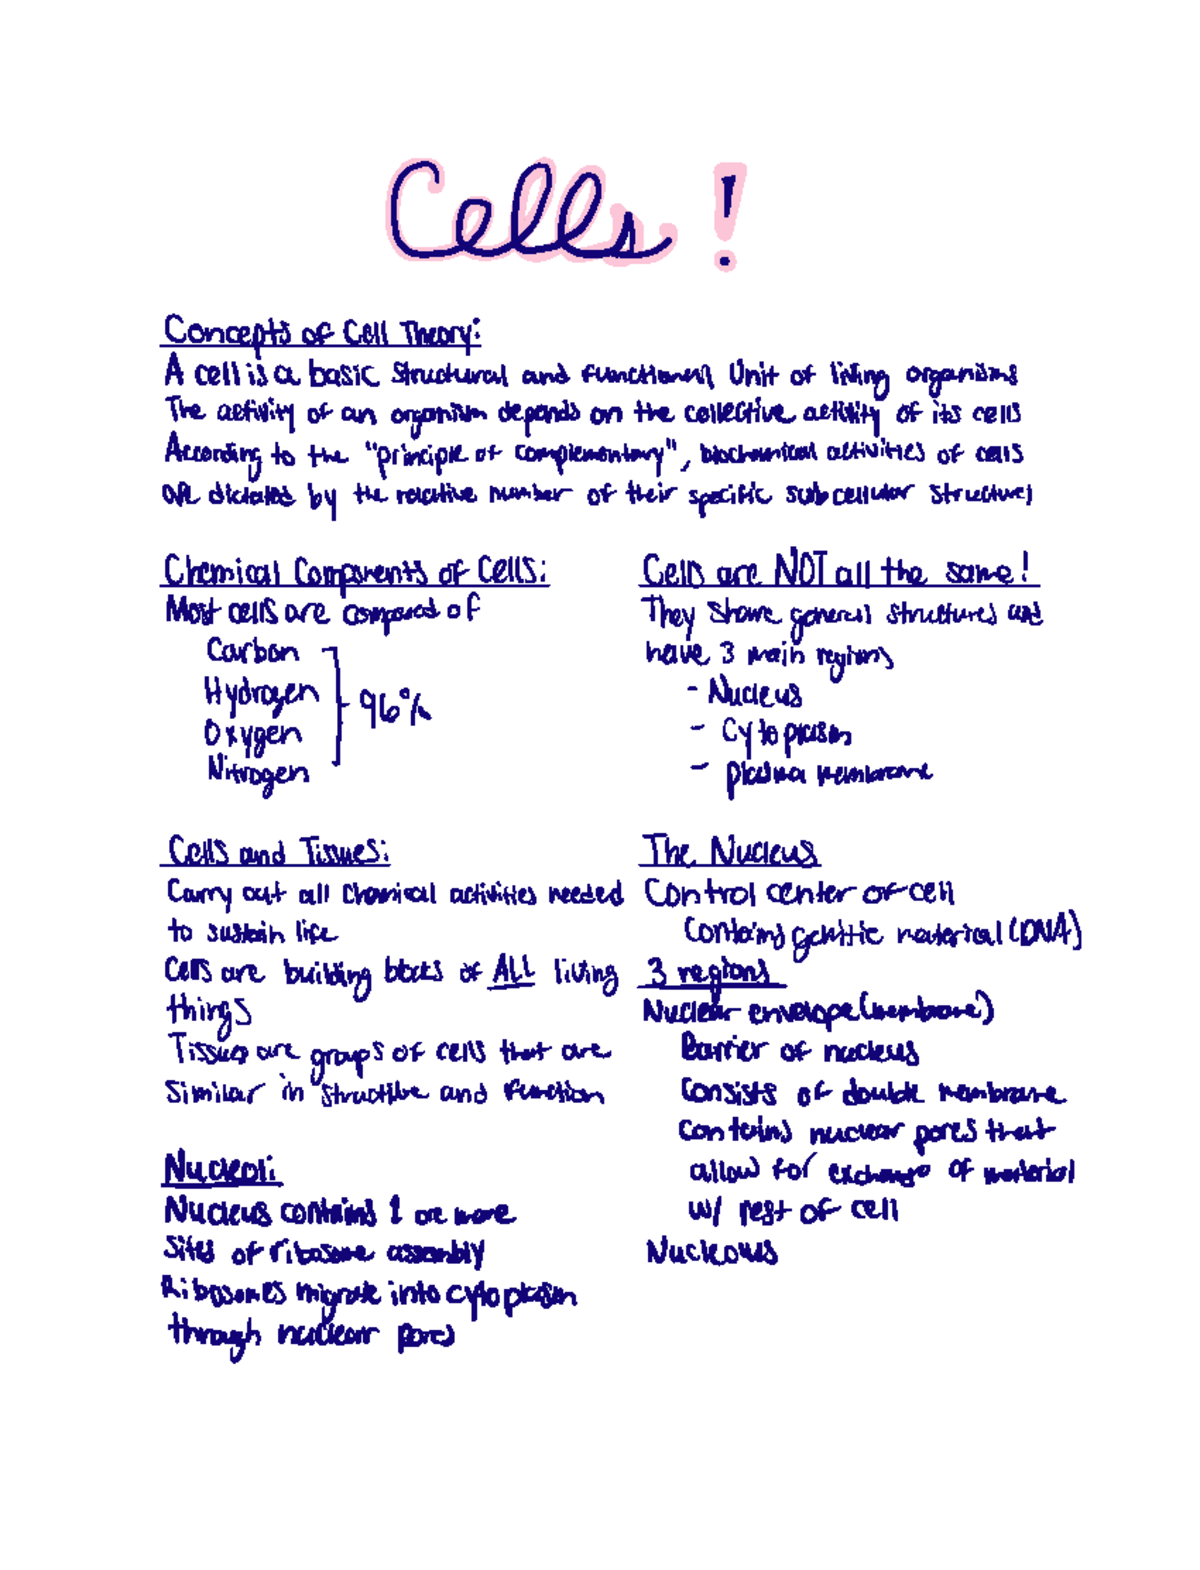 Cells !
Concepts of Cell Theory:
A cell is a basic structural and functional Unit of living organisms
The activity of an organism depends on the collective activity of its cells
According to the "principle of complementary", biochemical activities of cells
are dictated by the relative number of their specific subcellular structures
Chemical Components of Cells:
Most cells are composed of
Carbon
Hydrogen
Oxygen
Nitrogen
96%
Cells are NOT all the same!
They share general structures and
have 3 main regions
- Nucleus
- Cytoplasm
- plasma membrane
Cells and Tissues:
Carry out all chemical activities needed
to sustain life
Cells are building blocks of ALL living
things
Tissues are groups of cells that are
similar in structure and function
The Nucleus
Control center of cell
Contains genetic material (DNA)
3 regions
Nuclear envelope (membrane)
Barrier of nucleus
Consists of double membrane
contains nuclear pores that
allow for exchange of material
w/ rest of cell
Nucleolus
Nucleoli:
Nucleus contains 1 ore more
Sites of ribosome assembly
Ribosomes migrate into cytoplasm
through nuclear pores